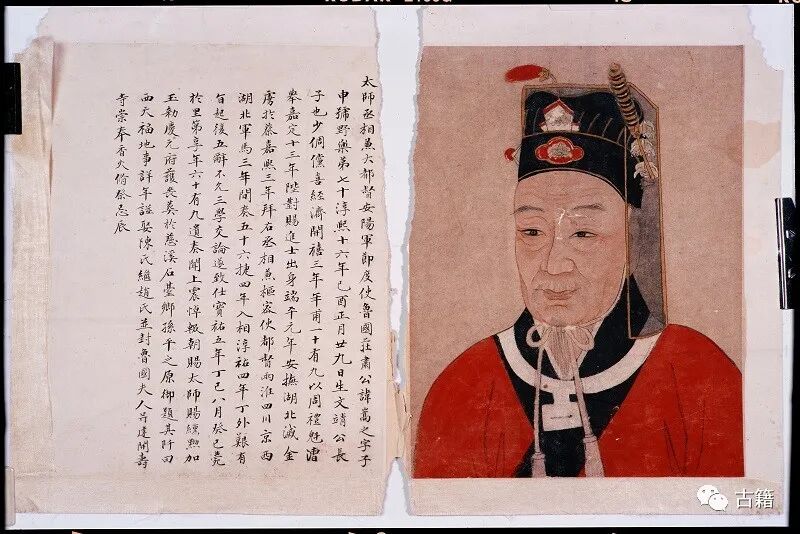 太師丞相兼大都督安陽軍節度使魯國莊肅公諱嵩之字子
申號野樂第七十淳熙十六年己酉正月廿九日生文靖公長
子也少倜儻喜經濟開禧三年年甫一十有九以周禮魁漕
舉嘉定十三年陛對賜進士出身端平元年安撫湖北滅金
虜於蔡嘉熙三年拜右丞相兼樞密使都督兩淮四川京西
湖北軍馬三年間奏五十六捷四年入相淳祐四年丁外艱有
旨起復五辭不允三學交論遂致仕寶祐五年丁巳八月癸巳薨
於里第享年六十有九遺奏聞上震悼輟朝賜太師賜加
玉勅慶元府護喪葬於慈溪石臺鄉孫平之原御題其阡曰
西天福地事詳年誌娶陳氏繼趙氏並封魯國夫人建開壽
寺崇奉香火脩祭忌辰
古籍